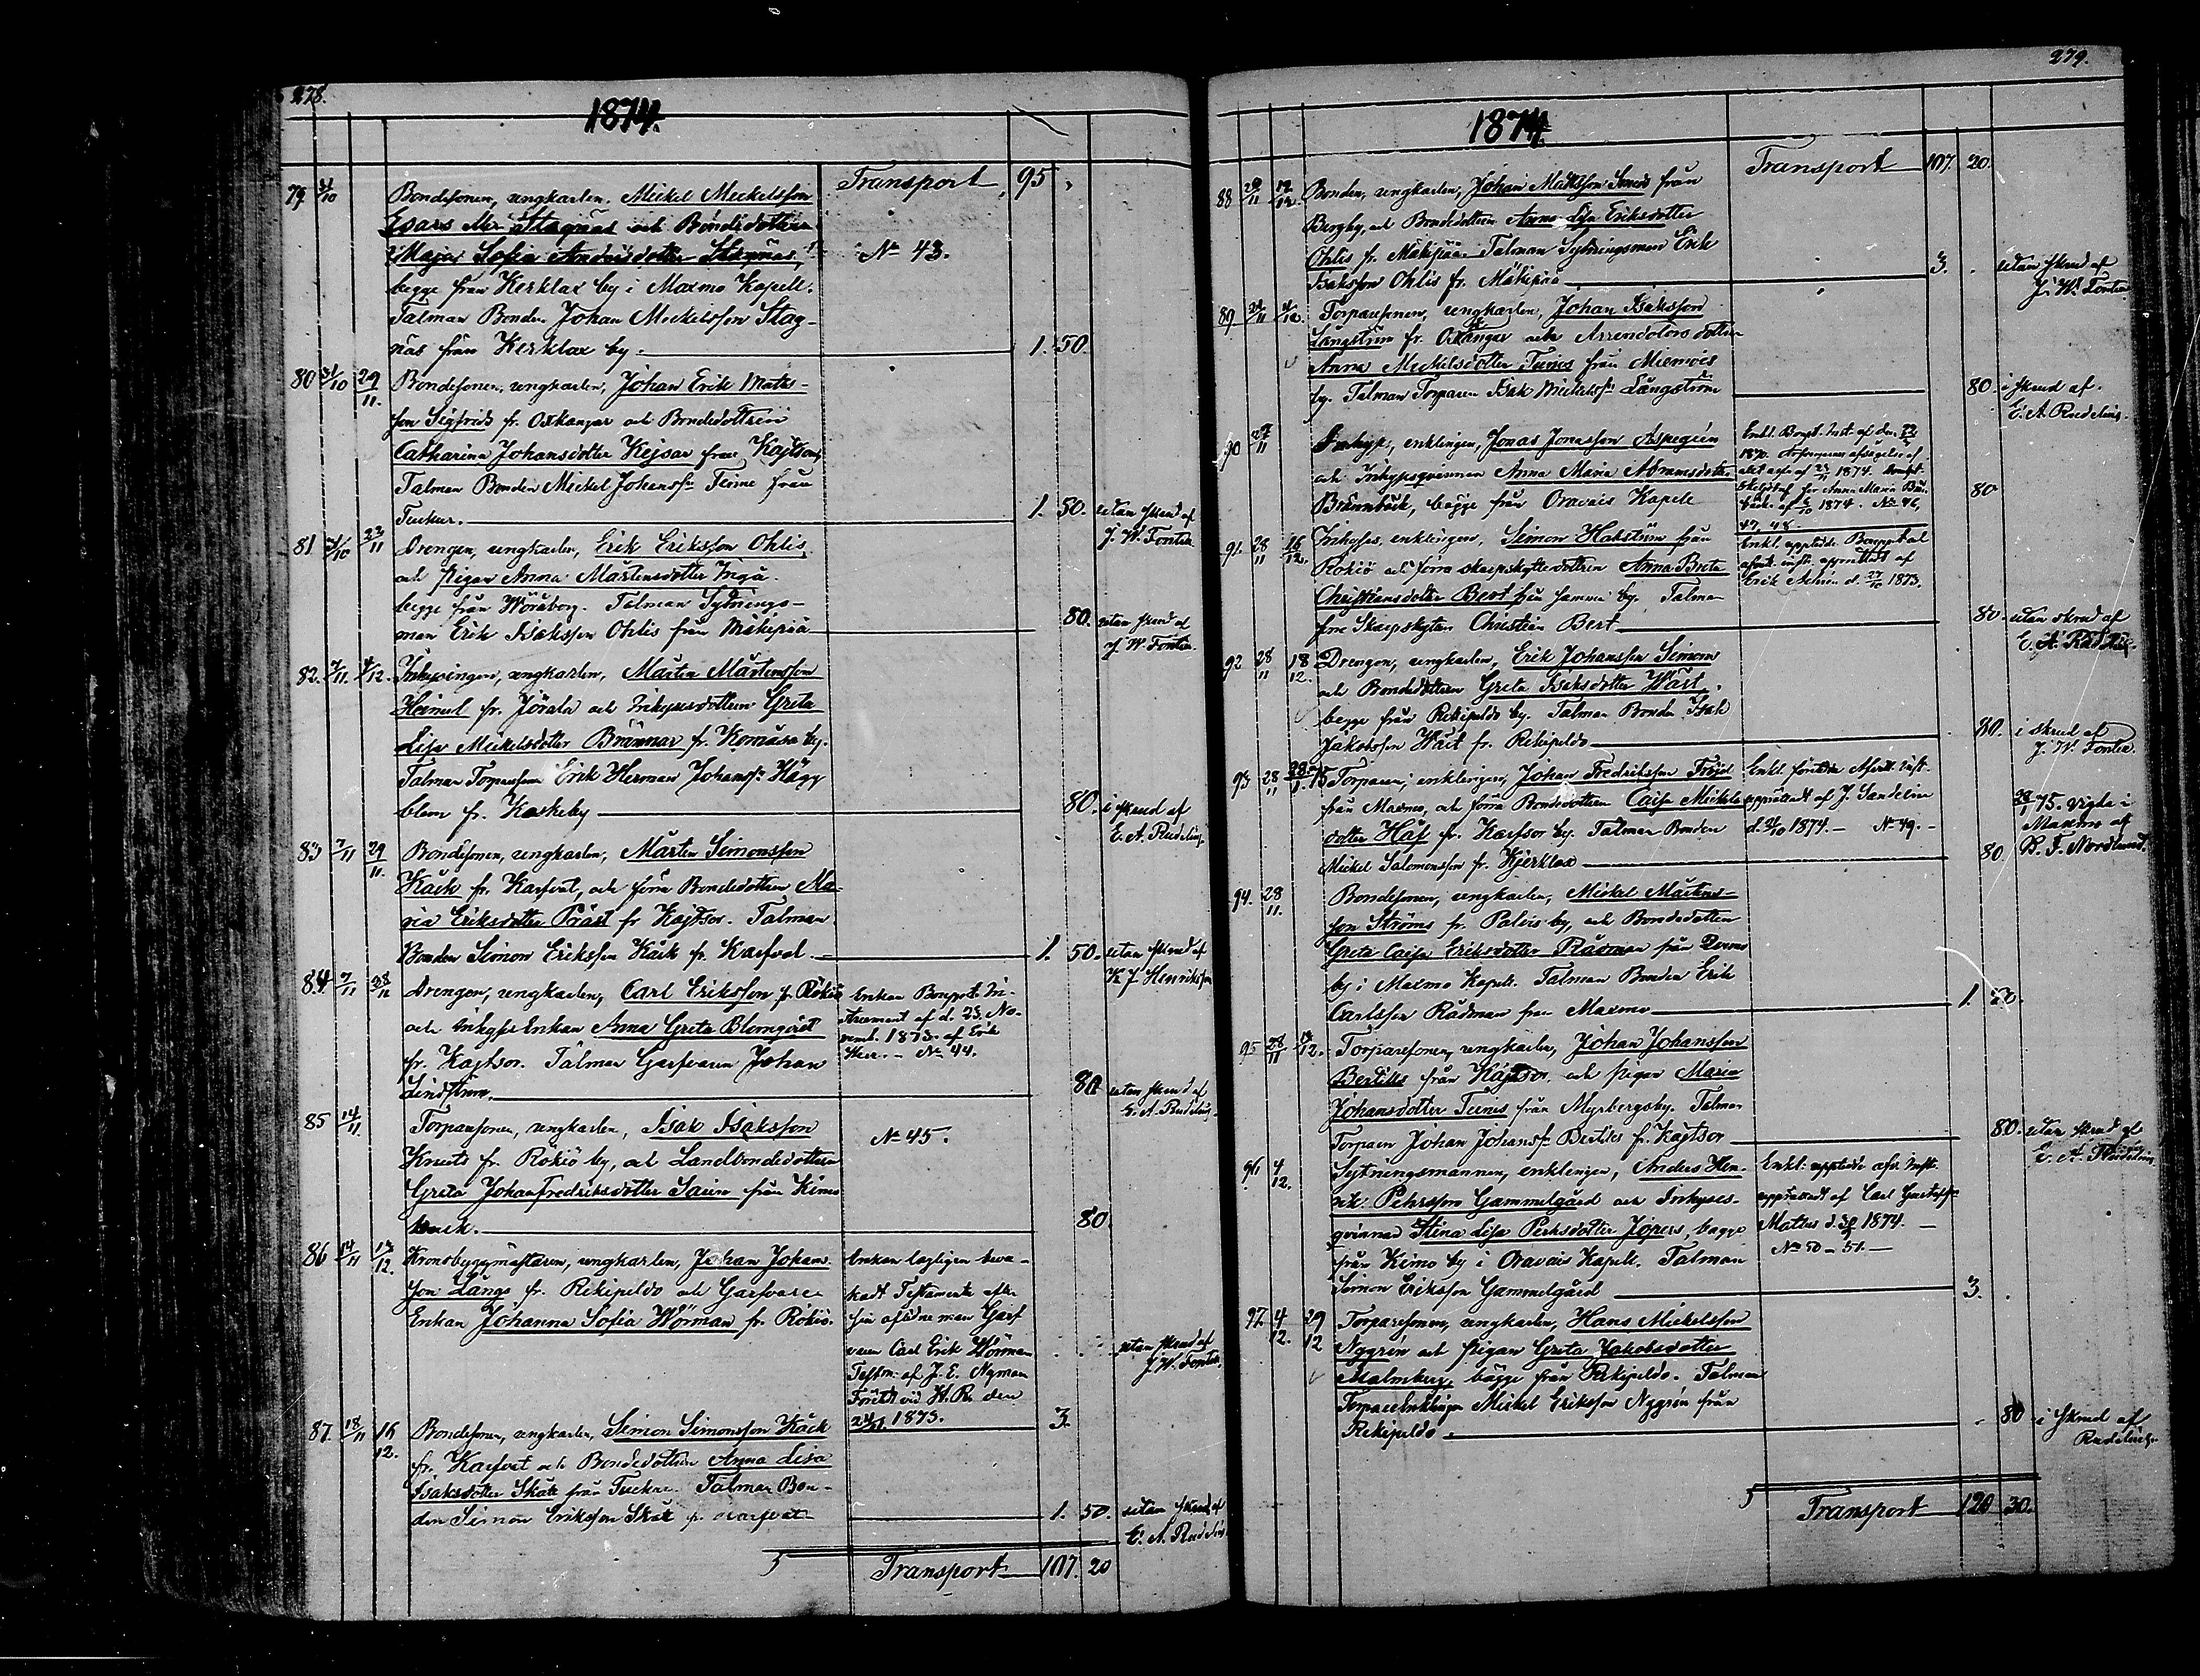 278.
1874.
Transport 95 "
79 31/10 Bondesonen, ungkarlen, Mickel Mickelsson
Stagnäs och Bondedottren
Maja Sofia Andersdotter Stagnäs,
N: 43.
begge från Kerklax by i Maxmo Kapell.
Talman Bonden Johan Mickelsson Stag-
näs från Kerklax by. 1. 50.
80 31/10 29/11. Bondesonen, ungkarlen, Johan Erik Mats-
son Sigfrids fr. Oxkangar och Bondedottren
Catharina Johansdotter Kejsar från Kajtsor,
Talman Bonden Mickel Johanss: Teine från
Tuckur. 1. 50. utan skrud af
J. W. Fontén
81 31/10 22/11 Drengen, ungkarlen, Erik Eriksson Ohlis,
och Pigan Anna Mårtensdotter Inga
begge från Wöråborg. Talman Sytnings-
man Erik Isaksson Ohlis från Mäkipää 80. utan skrud af
J. W. Fontén.
82. 7/11. 4/12. Inhysingen, ungkarlen, Martin Mårtensson
Heimul fr. Jörala och Inhysesdottren Greta
Lisa Mickelsdotter Brännar fr. Komåsa by.
Talman Torparesonen Erik Herman Johanss: Hägg
blom fr. Kaskeby 80. i skrud af
E. A. Rudelius.
83 7/11 29/11. Bondesonen, ungkarlen, Mårten Simonsson
Käck fr. Karfvat, och förra Bondedottren Ma-
ria Eriksdotter Präst fr Kajtsor. Talman
Bonden Simon Eriksson Käck fr. Karfvat. 1. 50. utan skrud af
K J Henriksson
84 7/11 Drengen, ungkarlen, Carl Eriksson fr Rökiö
och Inhyses Enkan Anna Greta Blomqvist
fr. Kajtsor. Talman Garfvaren Johan
Lindström. 80 utan skrud af
E. A. Rudelius.
Enkan Bouppt: In-
strument af d. 23. No-
vemb. 1873. af Erik
N: 44.
85 14/11. Torparesonen, ungkarlen, Isak Isaksson
Knuts fr. Rökiö by, och Landbondedottren
Greta Johan Fredriksdotter Sarin från Kimo
bruk. 80.
N: 45.
86 14/11 13/12. Kronobyggmästaren, ungkarlen, Johan Johans-
son Långs fr. Rekipeldo och Garfvare
Enkan Johanna Sofia Wörman fr. Rökiö.
Enkan lagligen beva-
kadt Testamente efter
sin aflidne man Garf
varen Carl Erik Wörman
Testm: af J. E. Nyman
vid H. R. den
1873. 3.
utan skrud af
J. W. Fontén.
87. 18/11 16/12. Bondesonen, ungkarlen, Simon Simonsson Käck
fr. Karfvat och Bondedottren Anna Lisa
Isaksdotter Skatt från Tuckur. Talman Bon-
den Simon Eriksson Skatt fr. Karfvat 1. 50. utan skrud af
E. A. Rudelius
Transport 107. 20

279.
1874.
Transport 107. 20.
88 Bonden, ungkarlen, Johan Matsson från
Bergby, och Bondedottren Anna Lisa Eriksdotter
Ohlis fr. Mäkipää. Talman Sytningsman Erik
Isaksson Ohlis fr. Mäkipää 3. utan skrud af
J. W. Fontén
89 Torparesonen, ungkarlen, Johan Isaksson
Långström fr. Oxkangar och Arrendators dottren
Anna Mickelsdotter Tunis från Miemois
by. Talman Torparen Isak Mickelss: Långström 80. i skrud af.
E. A. Rudelius.
90 27/11 Inhyses, enklingen, Jonas Jonasson Aspegrén
och Inhysesqvinnan Anna Maria Abramsdotter
Brännback, bägge från Oravais Kapell 80
Enkl. Boupt. Inst. af den
1870.
1874.
för Anna Maria Brän-
back. af 1874. N: 46,
47, 48.
91. 28/11 16/12. Inhyses, enklingen, Simon Hakström från
Rökiö och förra skarpskyttedottren Anna Brita
Christiansdotter Bert från samma by. Talman
förre Skarpskytten Christian Bert 80. utan skrud af
E. A. Rudelius.
Erik d. 1873.
92 28/11 18/12. Drengen, ungkarlen, Erik Johansson Simons
och Bondedottren Greta Isaksdotter Wäst,
begge från Rekipeldo by. Talman Bonden Isak
Jakobsson Wäst fr. Rekipeldo 80. i skrud af
J. W. Fontén.
93 28/11 Torparen, enklingen, Johan Fredriksson Fröjd
från Maxmo, och förra Bondedottren Caisa Mickels-
dotter Häf fr. Karfsor by. Talman Bonden
Mickel Salomonsson fr. Kjerklax 80.
Enkl. företedde Afvitt. Inst.
upprättadt af J. Sandelin
d. 1874. — N: 49. —
75. vigde i
Maxmo af
B. F. Nordlund.
94. 28/11. Bondesonen, ungkarlen, Mickel Mårtens-
son Ströms fr. Palvis by, och Bondedottren
Greta Caisa Eriksdotter Rådman från
by i Maxmo Kapell. Talman Bonden Erik
Carlsson Rådman från Maxmo 1. 50.
95 28/11 Torparesonen, ungkarlen, Johan Johansson
Bertills från Kajtsor och pigan Maria
Johansdotter Tunis från Myrbergsby. Talman
Torparen Johan Johanss: Bertils fr. Kajtsor 80. utan skrud af
E. A. Rudelius
96 4/12. Sytningsmannen, enklingen, Anders Hen-
rik Pehrsson Gammelgård och Inhyses-
qvinnan Stina Lisa Perhsdotter Jopers, bagge
från Kimo by i Oravais Kapell. Talman
Simon Eriksson Gammelgård 3.
Enkl: uppviste afv. Inst:
upprättadt af Carl Gustafss:
Mattus d. 1874. —
N: 50 — 51. —
97. 4/12. 29/12 Torparesonen, ungkarlen, Hans Mickelsson
Nygrén och Pigan Greta Jakobsdotter
Malmberg, bägge från Rekipeldo. Talman
Torpareenklingen Mickel Eriksson Nygrén från
Rekipeldo. 80 i skrud af
Rudelius.
Transport 120 30.